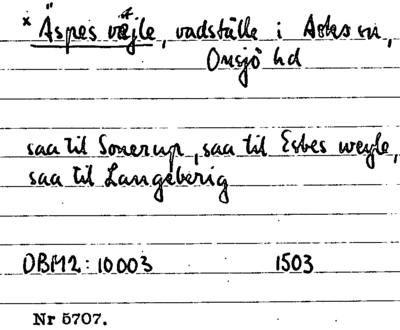 × Äspes väjle, vadställe i Askers sn,
Onsjö hd
saa til Sonerup, saa til Esbes weyle,
saa til Langeberig
DBM2: 10003 1503
Nr 5707.